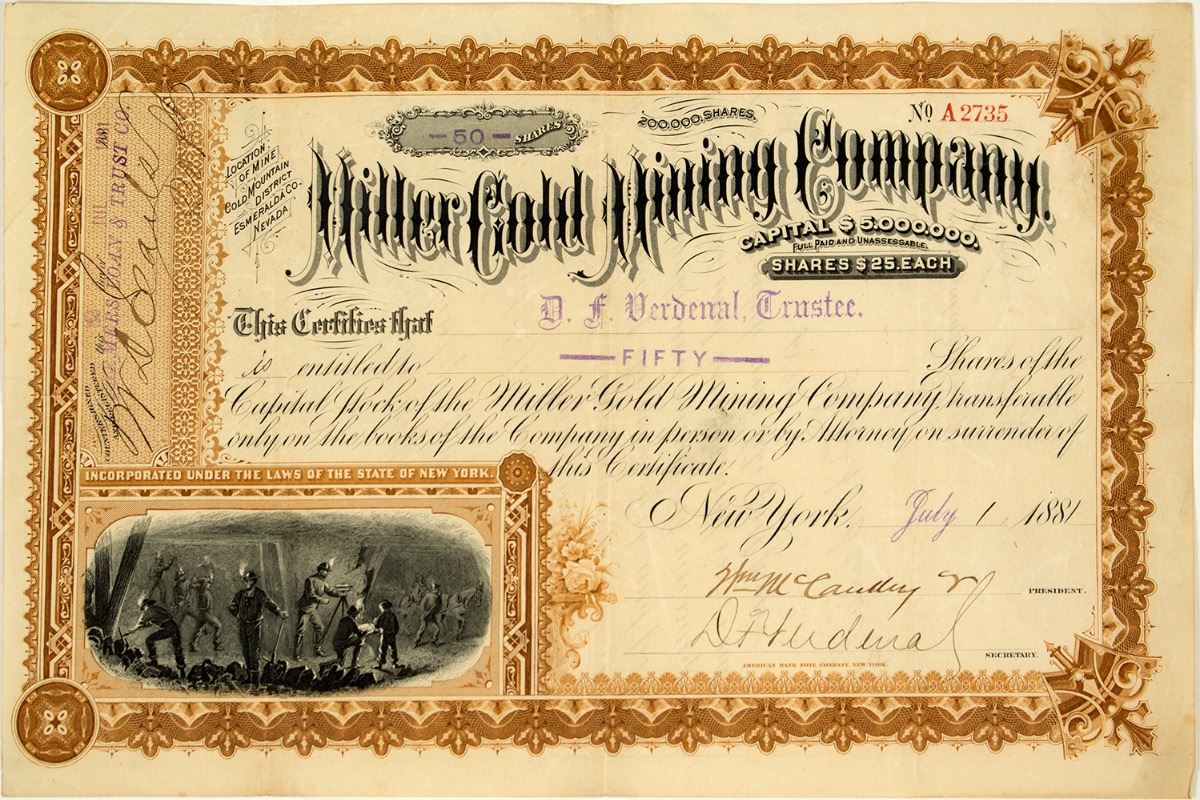 No A2735
— 50 — SHARES
200,000, SHARES
LOCATION
OF MINE
GOLD MOUNTAIN
DISTRICT
ESMERALDA CO.
NEVADA
Miller Gold Mining Company.
CAPITAL $ 5.000.000.
FULL PAID AND UNASSESSABLE.
SHARES $ 25. EACH
This Certifies that D. F. Verdenal, Trustee.
is entitled to — FIFTY — Shares of the
Capital Stock of the Miller Gold Mining Company, transferable
only on the books of the Company in person or by Attorney on surrender of
this Certificate.
New York, July 1, 1881
Wm McCaulley PRESIDENT.
D F Verdenal
SECRETARY.
AMERICAN BANK NOTE COMPANY, NEW YORK.
INCORPORATED UNDER THE LAWS OF THE STATE OF NEW YORK.
LOAN & TRUST CO
1881